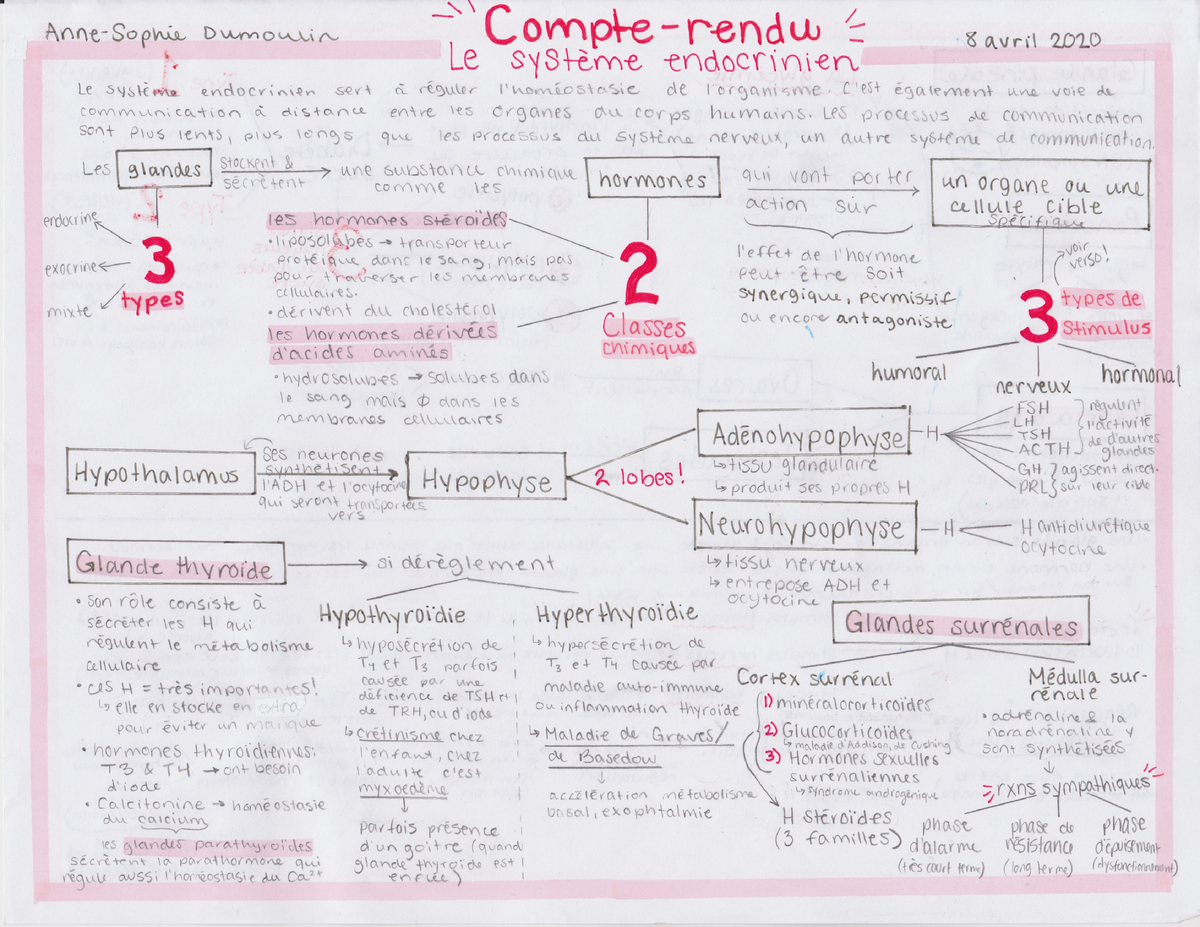 Anne-Sophie Dumoulin
Compte-rendu
8 avril 2020
Le système endocrinien
Le système endocrinien sert à réguler l'homéostasie de l'organisme. C'est également une voie de
communication à distance entre les organes du corps humains. Les processus de communication
sont plus lents, plus longs que les processus du système nerveux, un autre système de communication.
Les glandes
stockent &
sécrètent
une substance chimique
comme les
hormones
qui vont porter
action sur
un organe ou une
cellule cible
spécifique
endocrine
exocrine
mixte
3
types
les hormones stéroïdes
• liposolubes → transporteur
protéique dans le sang, mais pas
pour traverser les membranes
cellulaires.
• dérivent du cholestérol
les hormones dérivées
d'acides aminés
• hydrosolubes → solubes dans
le sang mais ∅ dans les
membranes cellulaires
2
Classes
chimiques
l'effet de l'hormone
peut être soit
synergique, permissif
ou encore antagoniste
voir
verso!
3 types de
stimulus
humoral
nerveux
hormonal
Hypothalamus
Ses neurones
synthétisent
l'ADH et l'ocytocine
qui seront transportées
vers
Hypophyse
2 lobes!
Adénohypophyse
↳ tissu glandulaire
↳ produit ses propres H
H
FSH
LH
TSH
ACTH
régulent
l'activité
de d'autres
glandes
GH
PRL
agissent direct.
sur leur cible
Neurohypophyse
↳ tissu nerveux
↳ entrepose ADH et
ocytocine
H
H antidiurétique
ocytocine
Glande thyroïde
• Son rôle consiste à
sécréter les H qui
régulent le métabolisme
cellulaire
• ces H = très importantes!
↳ elle en stocke en extra
pour éviter un manque
• hormones thyroïdiennes:
T3 & T4 → ont besoin
d'iode
• Calcitonine → homéostasie
du calcium
les glandes parathyroïdes
sécrètent la parathormone qui
régule aussi l'homéostasie du Ca²⁺
si dérèglement
Hypothyroïdie
↳ hyposécrétion de
T4 et T3 parfois
causée par une
déficience de TSH et
de TRH, ou d'iode
↳ Crétinisme chez
l'enfant, chez
l'adulte c'est
myxoedème
parfois présence
d'un goitre (quand
glande thyroïde est
enflée)
Hyperthyroïdie
↳ hypersécrétion de
T3 et T4 causée par
maladie auto-immune
ou inflammation thyroïde
↳ Maladie de Graves/
de Basedow
accélération métabolisme
basal, exophtalmie
Glandes surrénales
Cortex surrénal
1) minéralocorticoïdes
2) Glucocorticoïdes
↳ maladie d'Addison, de Cushing
3) Hormones sexuelles
surrénaliennes
↳ syndrome androgénique
H stéroïdes
(3 familles)
Médulla sur-
rénale
• adrénaline & la
noradrénaline y
sont synthétisées
rxns sympathiques
phase
d'alarme
(très court terme)
phase de
résistance
(long terme)
phase
d'épuisement
(dysfonctionnement)